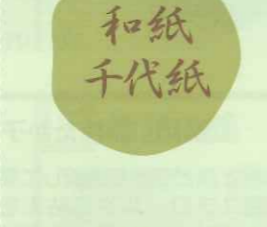 和紙
千代紙